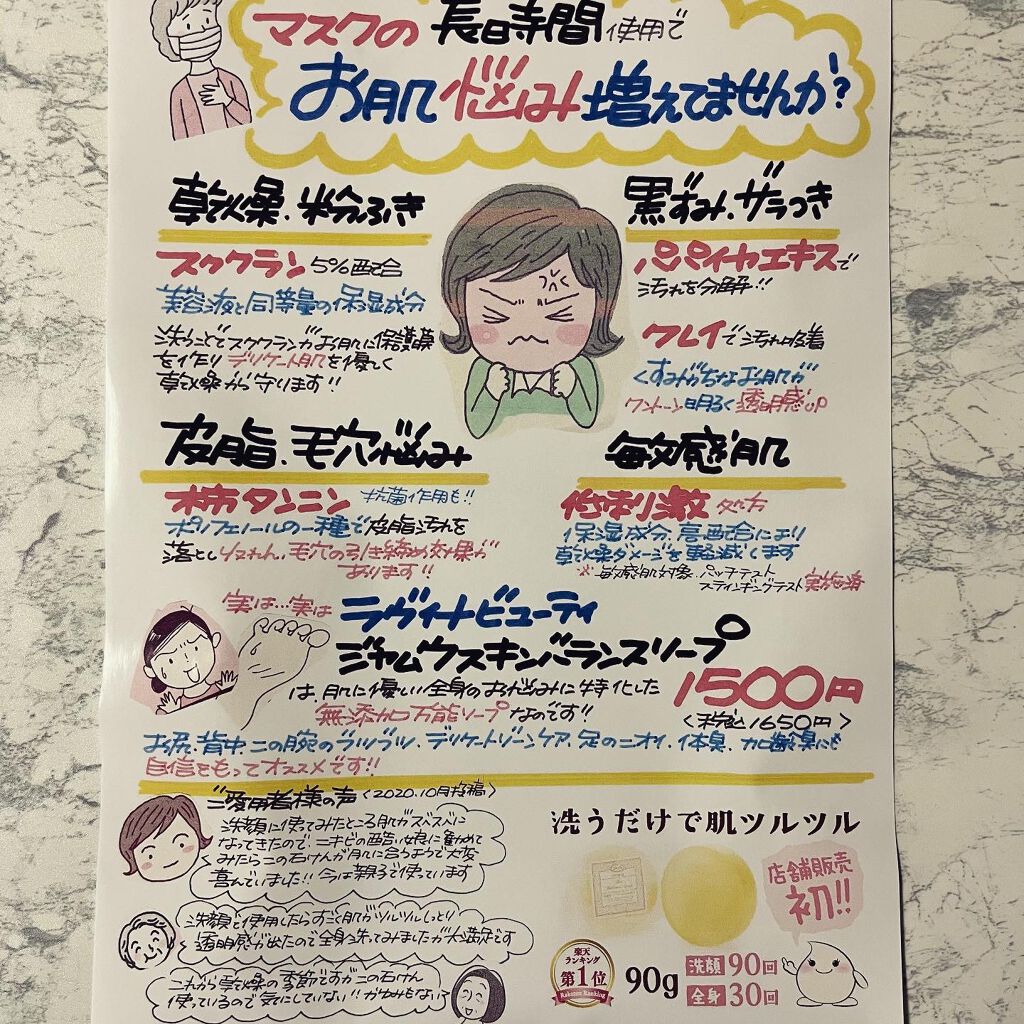 マスクの長時間使用で
お肌悩み増えてませんか?
乾燥、粉ふき
スクワラン5%配合
美容液と同等量の保湿成分
洗うことでスクワランがお肌に保護膜
を作りデリケート肌を優しく
乾燥から守ります!!
黒ずみ、ザラつき
パパイヤエキスで
汚れを分解!!
クレイで汚れ吸着
くすみがちなお肌が
ワントーン明るく透明感UP
皮脂、毛穴悩み
柿タンニン 抗菌作用も!!
ポリフェノールの一種で皮脂汚れを
落としりれん、毛穴の引き締め効果が
あります!!
敏感肌
低刺激処方
保湿成分高配合により
乾燥ダメージを軽減します
※敏感肌対象パッチテスト
スティンギングテスト実施済
実は…実は
ラヴィナビューティ
ジャムウスキンバランスソープ
は、肌に優しい全身のお悩みに特化した
無添加万能ソープなのです!!
1500円
<税込1650円>
お尻、背中、二の腕のブツブツ、デリケートゾーンケア、足のニオイ、体臭、加齢臭にも
自信をもってオススメです!!
ご愛用者様の声<2020.10月投稿>
洗顔に使ってみたところ肌がスベスベに
なってきたので、ニキビの酷い娘に勧めて
みたらこの石けんが肌に合うようで大変
喜んでいました!!今は親子で使っています
洗顔で使用したらすごく肌がツルツルしっとり
透明感が出たので全身洗ってみましたが大満足です
これから乾燥の季節ですがこの石けん
使っているので気にしていない!!かゆみもない
洗うだけで肌ツルツル
店舗販売
初!!
楽天
ランキング
第1位
Rakuten Ranking
90g
洗顔90回
全身30回